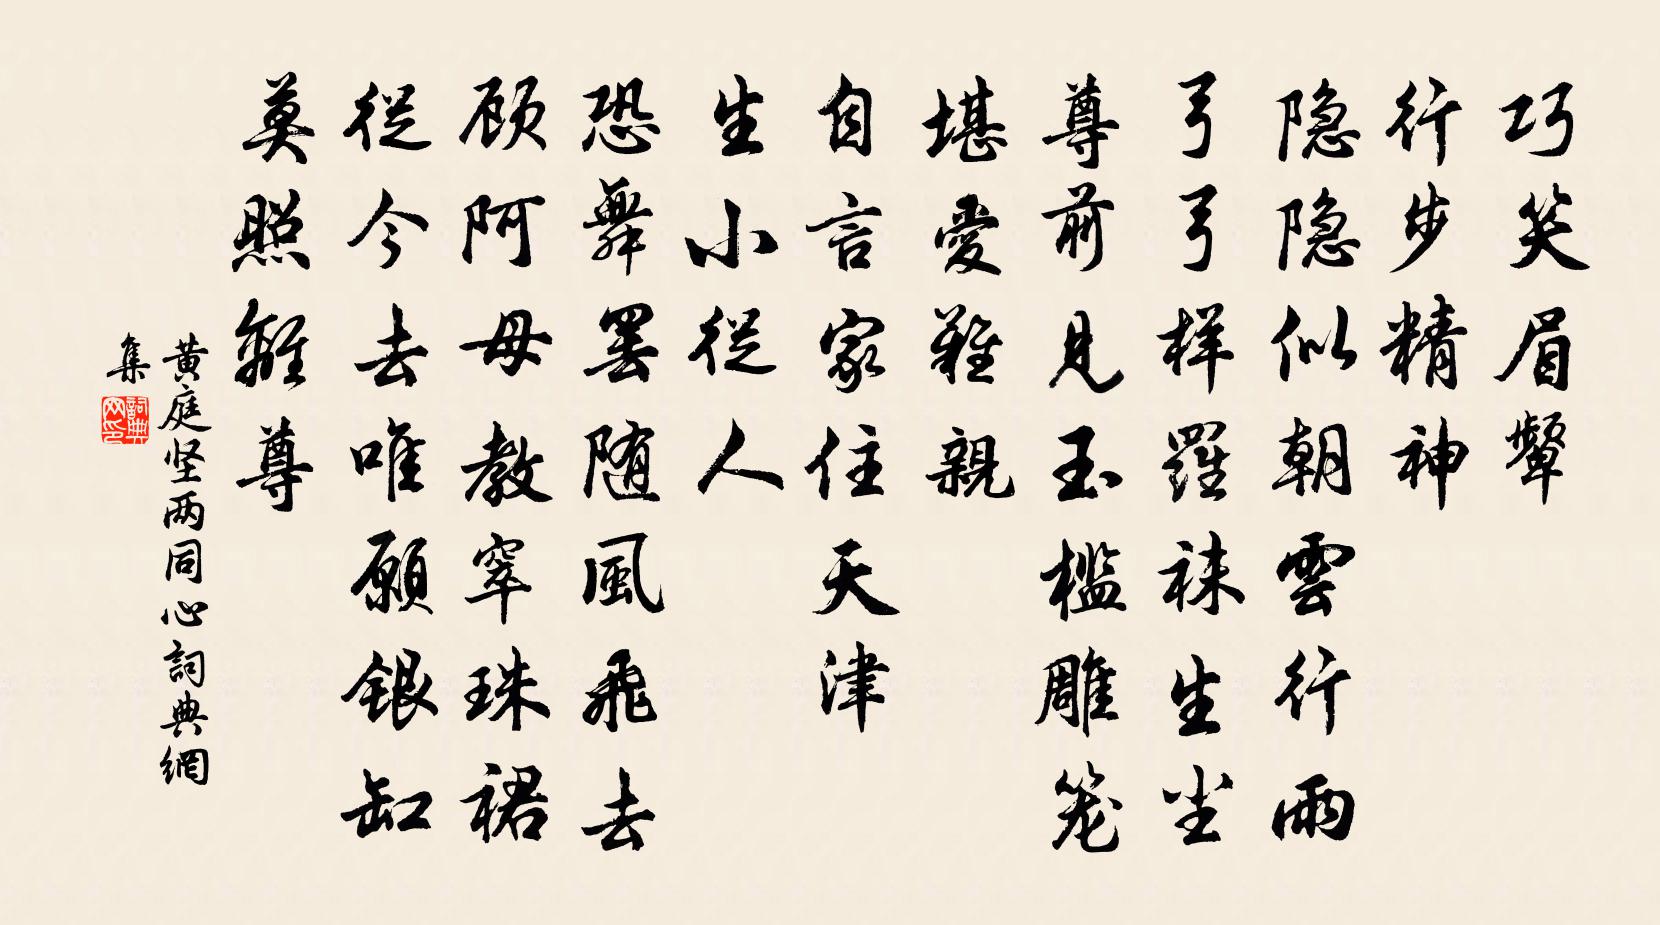 巧笑眉颦
行步精神
隐隐似朝雲行雨
弓弓样羅袜生尘
尊前見玉槛雕笼
堪愛難親
自言家住天津
生小從人
恐舞罢随風飛去
顾阿母教窣珠裙
從今去唯願銀缸
莫照離尊
黄庭坚两同心詞典網
集
詞典
网印